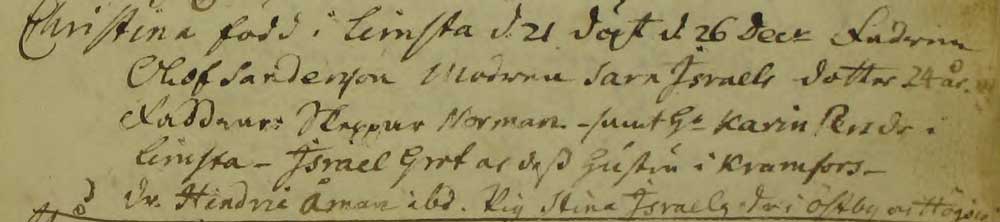 Christina född i Limsta d. 21 döpt d. 26 Decr Fadren
Olof Sanderson Modren Sara Israels dotter 24 år.
Faddrar: Skeppar Norman. - samt Ha Karin Persdr i
Limsta - Israel Gret as hustru i Kramfors -
dr. Hindric Åman ibd. Pig Stina Israels dr i Östby